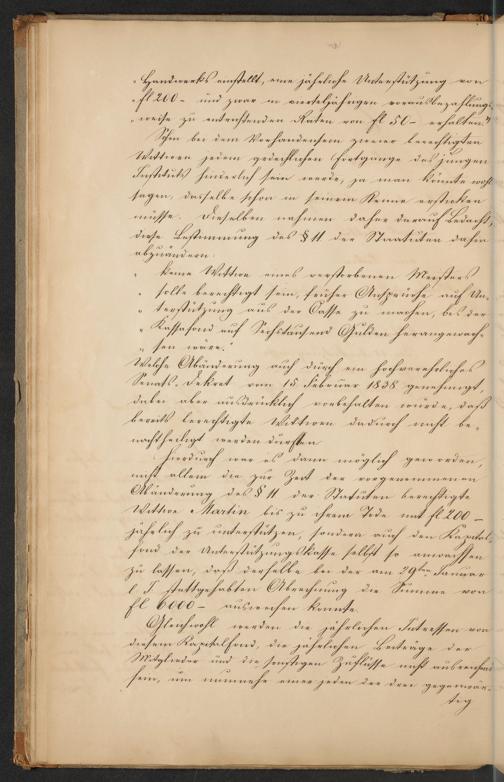 „Handwerks anstellt, eine jährliche Unterstützung von
„fl 200 – und zwar in vierteljährigen vorausbezahlungs
„weise zu entrichtenden Raten von fl 50 – erhalten.“
Schon bei dem Vorhandensein zweier berechtigten
Wittwen jedem gedeihlichen Fortgange des jungen
Instituts hinderlich sein werde, ja man könnte wohl
sagen, dasselbe schon in seinem Keime ersticken
müsse. Dieselben nahmen daher darauf Bedacht,
diese Bestimmung des § 11 der Staatuten dahin
abzuändern:
„ keine Wittwe eines verstorbenen Meisters
„ solle berechtigt sein, früher Ansprüche auf Un-
„ terstützung aus der Casse zu machen, bis der
„ Kassafond auf Sechstausend Gulden herangewach-
„ sen wäre.“
Welche Abänderung auch durch ein hochverehrliches
Senats-Dekret vom 15 Februar 1838 genehmigt,
dabei aber ausdrücklich vorbehalten wurde, daß
bereits berechtigte Wittwen dadurch nicht be-
nachtheiligt werden dürften.
Hierdurch war es dann möglich geworden,
nicht allein die zur Zeit der vorgenommenen
Abänderung des § 11 der Statuten berechtigte
Wittwe Martin bis zu ihrem Tode mit fl 200 –
jährlich zu unterstützen, sondern auch den Kapital-
fond der Unterstützungskasse selbst so anwachsen
zu lassen, daß derselbe bei der am 29ten Januar
l. J. stattgehabten Abrechnung die Summe von
fl 6000 – ausweisen konnte.
Gleichwohl werden die jährlichen Interessen von
diesem Kapitalfond, die jährlichen Beiträge der
Mitglieder und die sonstigen Zuflüsse nicht ausreichend
sein, um nunmehr einer jeden der drei gegenwär-
tig